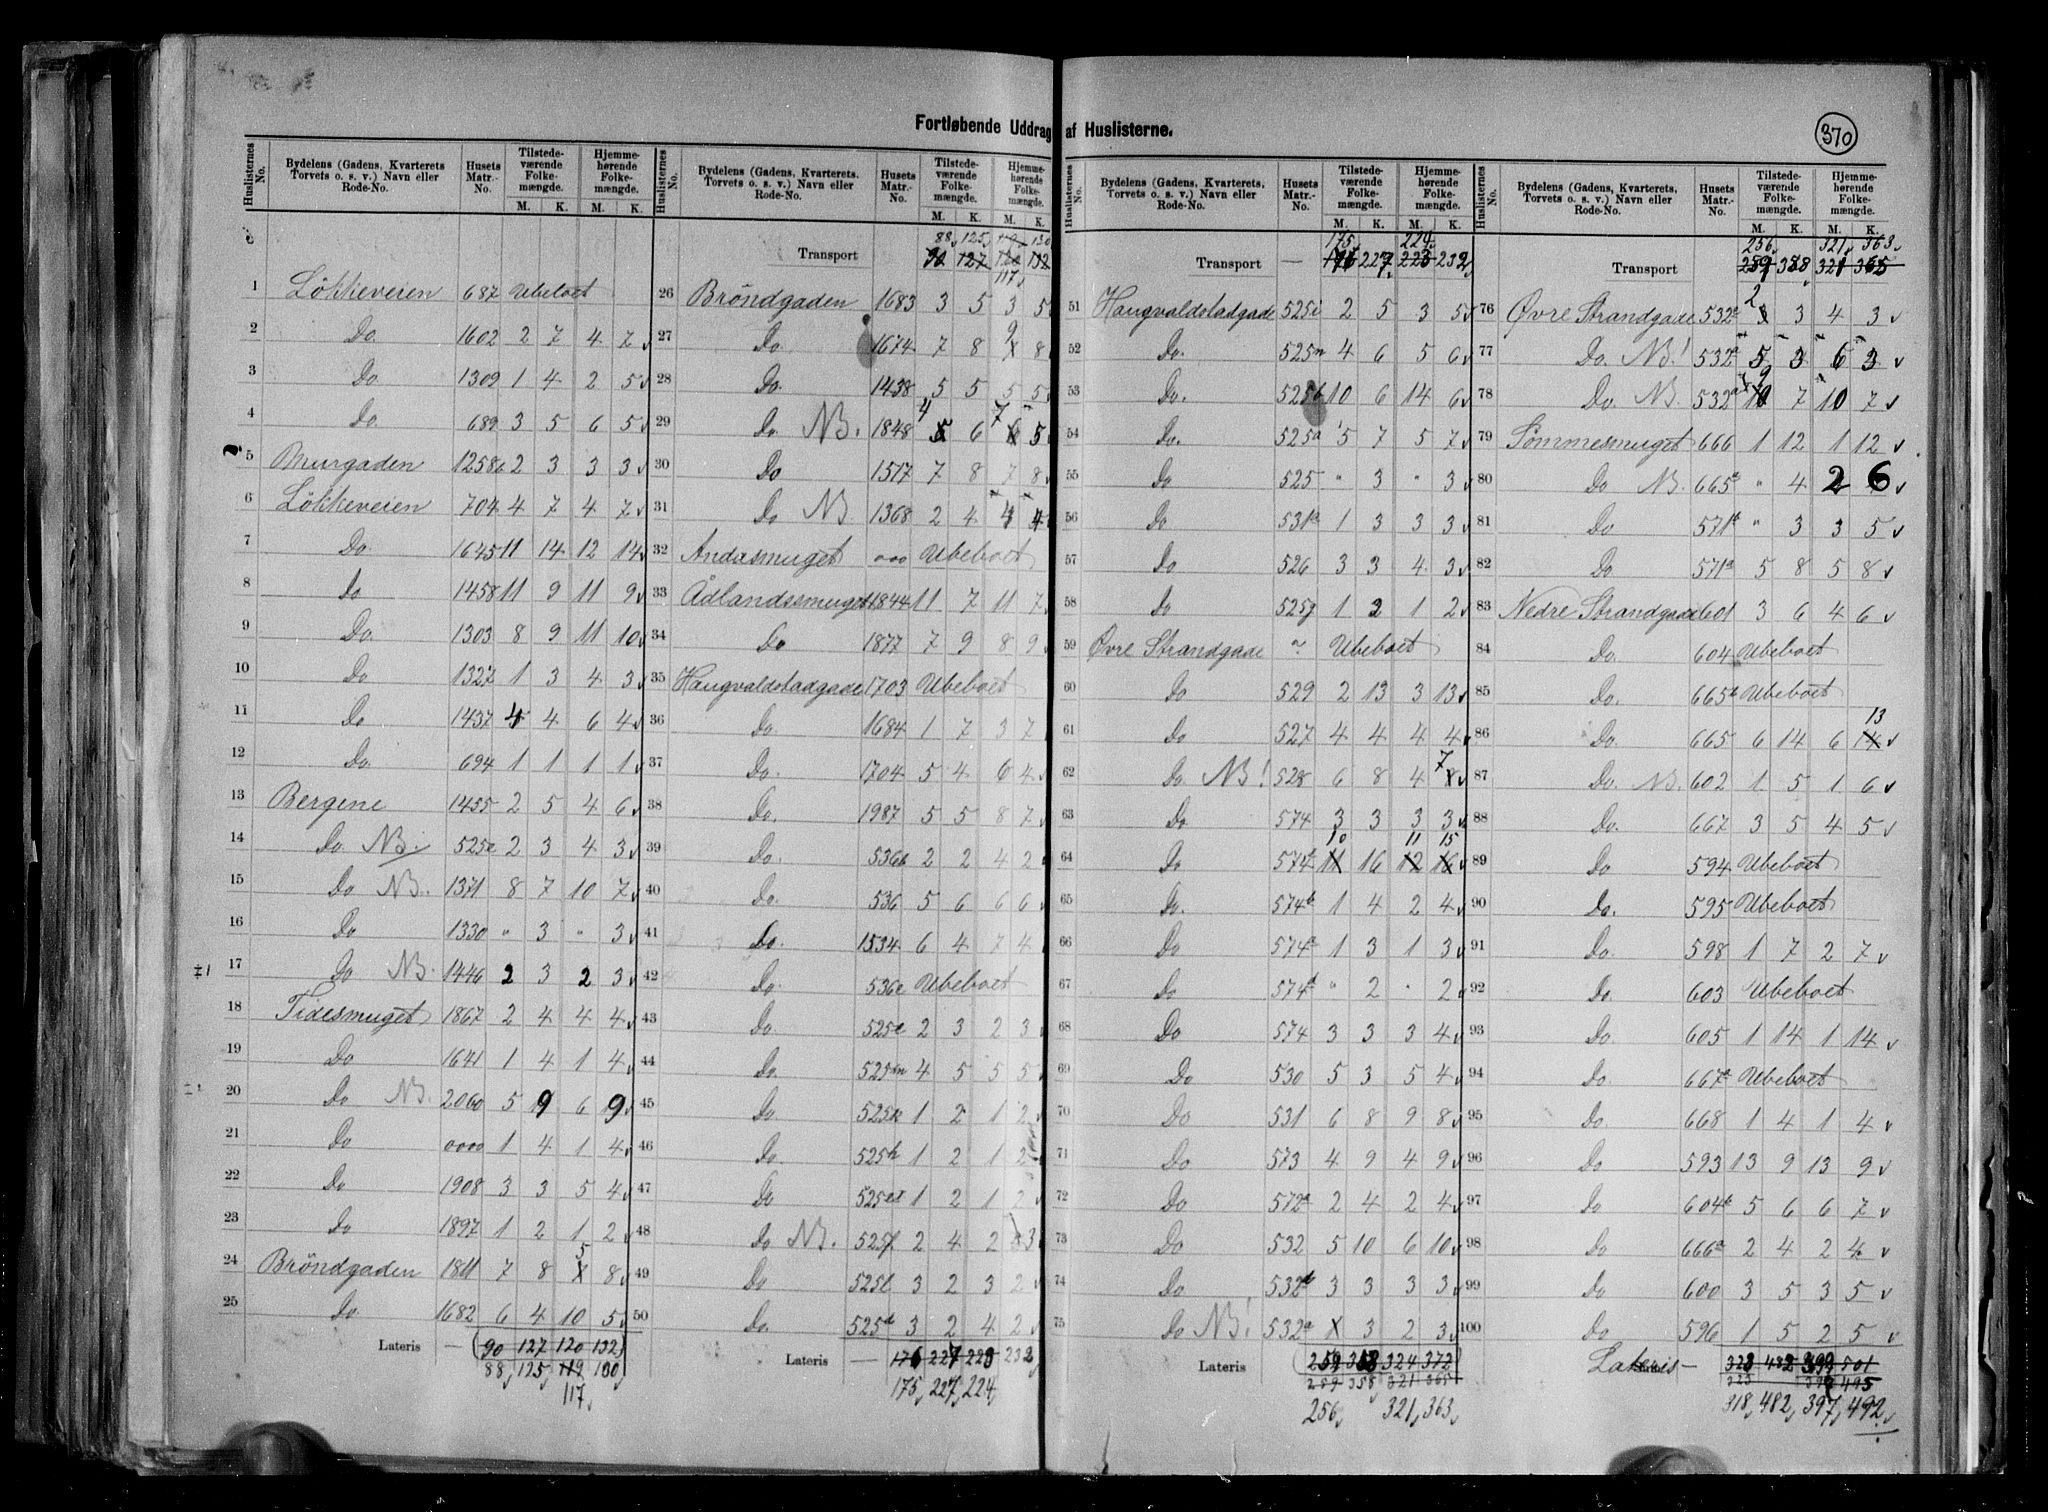 370
Fortløbende Uddrag af Huslisterne.
Huslisternes No. | Bydelens (Gadens, Kvarterets Torvets o. s. v.) Navn eller Rode-No. | Husets Matr.-No. | Tilstedeværende Folkemængde. M. K. | Hjemmehørende Folkemængde. M. K.
1 Løkkeveien 687 Ubeboet
2 Do 1602 2 7 4 7
3 Do 1309 1 4 2 5
4 Do. 689 3 5 6 5
5 Murgaden 1258b 2 3 3 3
6 Løkkeveien 704 4 7 4 7
7 Do 1645 11 14 12 14
8 Do 1458 11 9 11 9
9 Do. 1303 8 9 11 10
10 Do 1327 1 3 4 3
11 Do 1437 4 4 6 4
12 Do. 694 1 1 1 1
13 Bergene 1455 2 5 4 6
14 Do. NB. 525c 2 3 4 3
15 Do NB. 1371 8 7 10 7
16 Do 1330 " 3 " 3
17 Do NB. 1446 2 3 2 3
18 Tidesmuget 1867 2 4 4 4
19 Do 1641 1 4 1 4
20 Do NB. 2060 5 9 6 9
21 Do 0000 1 4 1 4
22 Do 1908 3 3 5 4
23 Do 1897 1 2 1 2
24 Brøndgaden 1811 7 8 5 8
25 Do 1682 6 4 10 5
Lateris — 90 127 120 132
88 125 119 130
117
Huslisternes No. | Bydelens (Gadens, Kvarterets, Torvets o. s. v.) Navn eller Rode-No. | Husets Matr.-No. | Tilstedeværende Folkemængde. M. K. | Hjemmehørende Folkemængde. M. K.
88 125 119 130
Transport 90 127 120 132
117
26 Brøndgaden 1683 3 5 3 5
27 Do 1674 7 8 9 8
28 Do 1438 5 5 5 5
29 Do NB. 1848 4 6 7 5
30 Do 1517 7 8 7 8
31 Do NB 1368 2 4 4 4
32 Andasmuget 000 Ubeboet
33 Ådlandssmuget 1844 11 7 11 7
34 Do 1877 7 9 8 9
35 Haugvaldstadgade 1703 Ubeboet
36 Do 1684 1 7 3 7
37 Do. 1704 5 4 6 4
38 Do. 1987 5 5 8 7
39 Do. 536b 2 2 4 2
40 Do. 536 5 6 6 6
41 Do. 1534 6 4 7 4
42 Do. 536c Ubeboet
43 Do 525e 2 3 2 3
44 Do. 525m 4 5 5 5
45 Do 525k 1 2 1 2
46 Do. 525h 1 2 1 2
47 Do 1 2 1 2
48 Do NB. 525f 2 4 2 3
49 Do 525l 3 2 3 2
50 Do. 525d 3 2 4 2
Lateris — 176 227 223 232
175 227 224
Huslisternes No. | Bydelens (Gadens, Kvarterets, Torvets o. s. v.) Navn eller Rode-No. | Husets Matr.-No. | Tilstedeværende Folkemængde. M. K. | Hjemmehørende Folkemængde. M. K.
175 224
Transport — 176 227 223 232
51 Haugvaldstadgade 525i 2 5 3 5
52 Do. 525n 4 6 5 6
53 Do. 525b 10 6 14 6
54 Do. 525a 5 7 5 7
55 Do 525 " 3 " 3
56 Do 531a 1 3 3 3
57 Do 526 3 3 4 3
58 Do 525g 1 2 1 2
59 Øvre Strandgade ~ Ubeboet
60 Do 529 2 13 3 13
61 Do 527 4 4 4 4
62 Do NB! 528 6 8 4 7
63 Do 574 3 3 3 3
64 Do 574 10 16 11 15
65 Do. 574b 1 4 2 4
66 Do 574a 1 3 1 3
67 Do 574d " 2 " 2
68 Do 574 3 3 3 4
69 Do 530 5 3 5 4
70 Do 531 6 8 9 8
71 Do 573 4 9 4 9
72 Do 572a 2 4 2 4
73 Do 532 5 10 6 10
74 Do 532d 3 3 3 3
75 Do NB! 532a 1 3 2 3
Lateris 259 358 324 372
259 358 321 365
256 321 363
Huslisternes No. | Bydelens (Gadens, Kvarterets, Torvets o. s. v.) Navn eller Rode-No. | Husets Matr.-No. | Tilstedeværende Folkemængde. M. K. | Hjemmehørende Folkemængde. M. K.
256 321 363
Transport 259 358 321 365
76 Øvre Strandgade 532a 2 3 4 3
77 Do. NB! 532 5 3 6 3
78 Do. NB. 532a 9 7 10 7
79 Sømmesmuget 666 1 12 1 12
80 Do NB. 665a " 4 2 6
81 Do 571b " 3 3 5
82 Do 571a 5 8 5 8
83 Nedre Strandgade 601 3 6 4 6
84 Do. 604 Ubeboet
85 Do. 665b Ubeboet
86 Do. 665 6 14 6 13
87 Do. NB. 602 1 5 1 6
88 Do. 667 3 5 4 5
89 Do 594 Ubeboet
90 Do. 595 Ubeboet
91 Do. 598 1 7 2 7
92 Do. 603 Ubeboet
93 Do. 605 1 14 1 14
94 Do 667a Ubeboet
95 Do. 668 1 4 1 4
96 Do 593 13 9 13 9
97 Do 604b 5 6 6 7
98 Do 666a 2 4 2 4
99 Do 600 3 5 3 5
100 Do 596 1 5 2 5
Lateris — 323 482 399 501
318 482 397 492